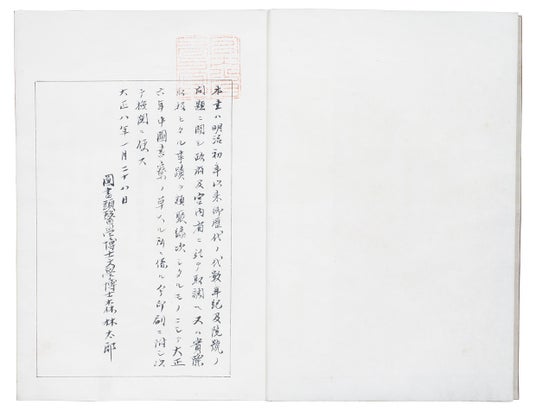 本書ハ明治初年以来御歴代ノ代数年紀及院號ノ
問題ニ関シ政府及宮内省ニ於テ取調ヘ又ハ實際
取扱ヒタル事蹟ヲ類聚編次シタルモノニシテ大正
六年中圖書寮ノ草スル所ニ係ル今印刷ニ附シ以
テ検閲ニ便ス
大正八年一月二十八日
圖書頭醫学博士文学博士森林太郎